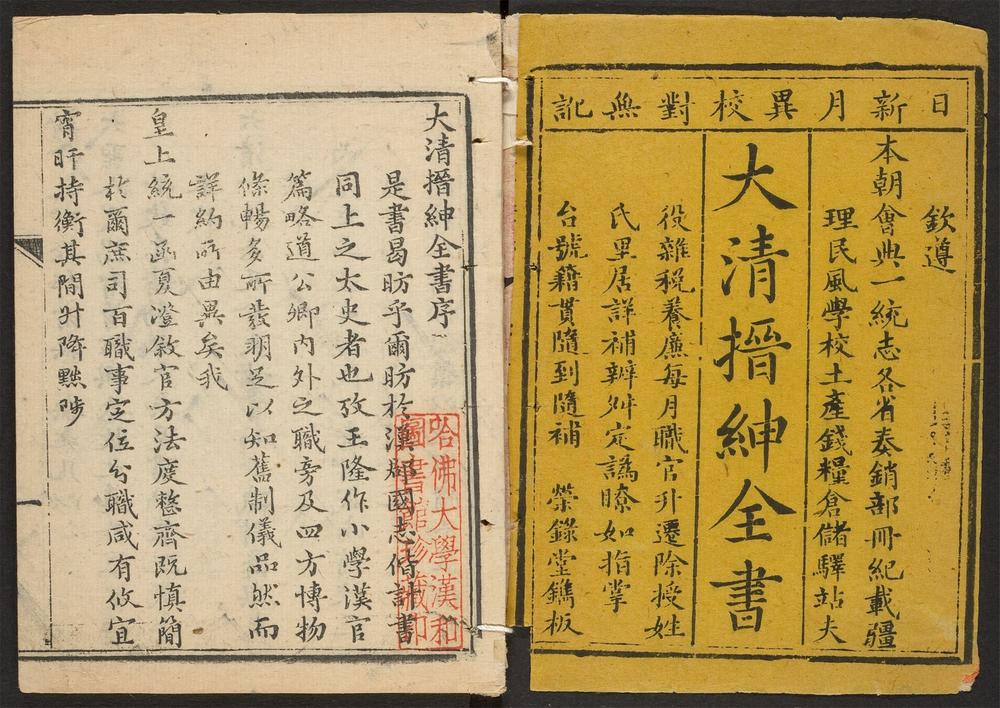 日新月異校對無訛
欽遵
本朝會典一統志各省奏銷部冊紀載疆
理民風學校土產錢糧倉儲驛站夫
大清搢紳全書
役雜稅養廉每月職官升遷除授姓
氏里居詳補辨舛定譌瞭如指掌
台號籍貫隨到隨補 榮錄堂鐫板
大清搢紳全書序
是書曷昉乎爾昉於漢郡國志偕計書
同上之太史者也攷王隆作小學漢官
篇略道公卿內外之職旁及四方博物
條暢多所發明足以知舊制儀品然而
詳約所由異矣我
皇上統一函夏澄敘官方法度整齊既慎簡
於爾庶司百職事定位分職咸有攸宜
宵旰持衡其間升降黜陟
一
哈佛大學漢和
圖書館珍藏印